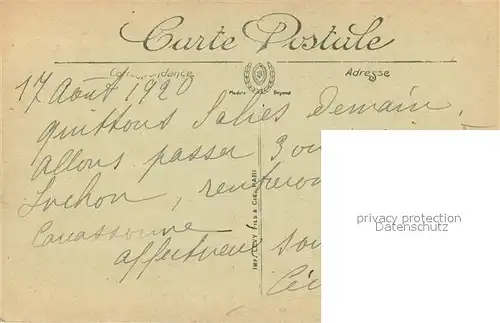 Carte Postale
Correspondance
Adresse
Modèle Déposé
17 Août 1920
quittons Salies demain,
allons passer 3 ou
Luchon, rentreron
Carcassonne
affectueux sou
Céci
IMP. LEVY FILS & CIE. PARI
privacy protection
Datenschutz